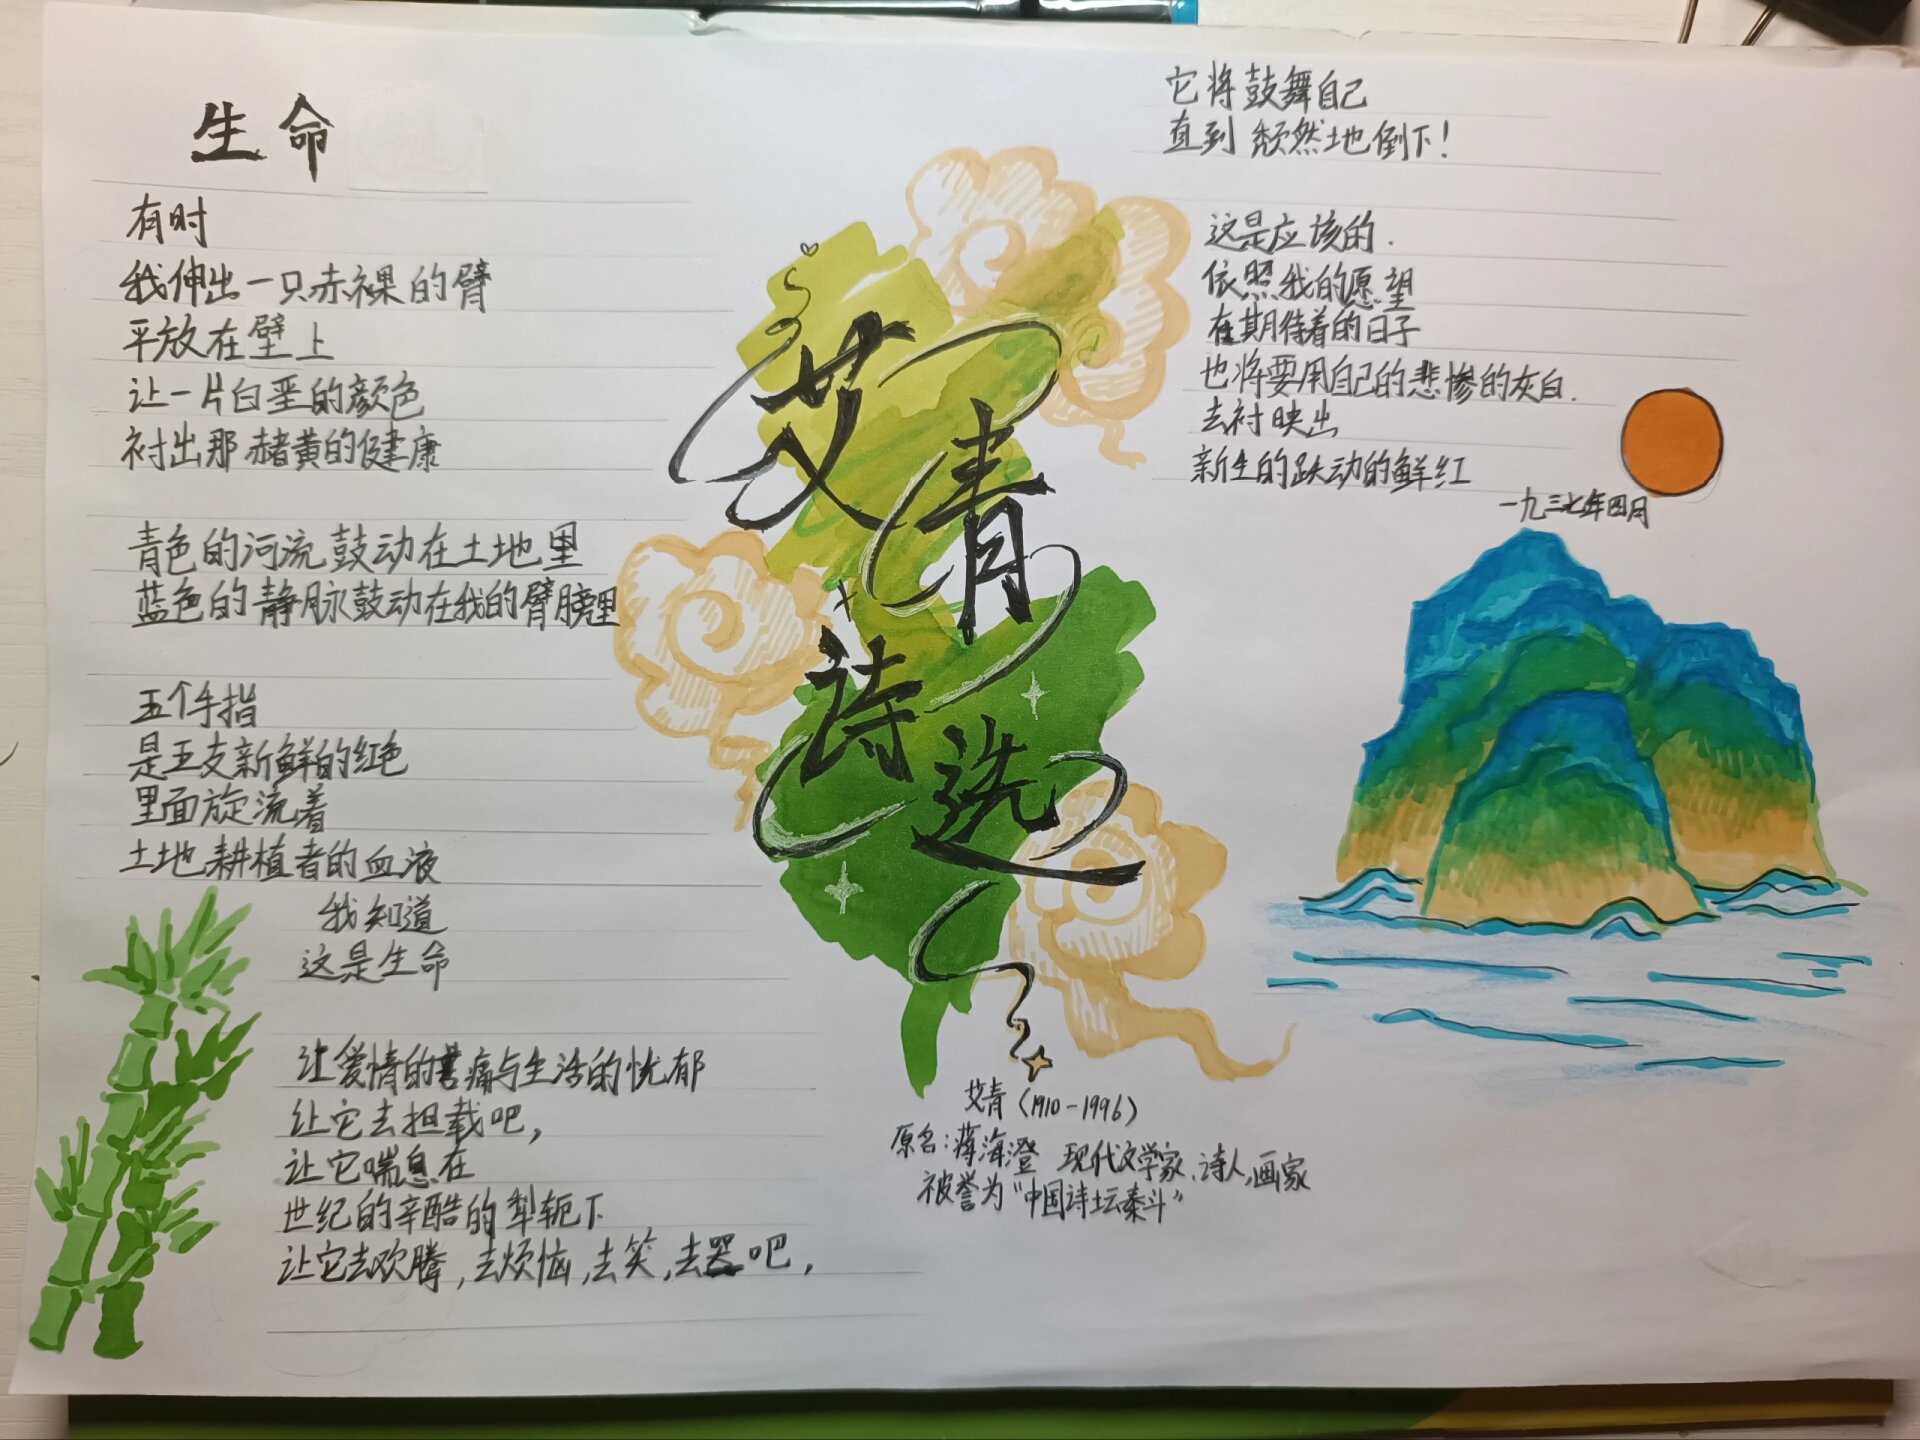 生命
有时
我伸出一只赤裸的臂
平放在壁上
让一片白垩的颜色
衬出那赭黄的健康
青色的河流鼓动在土地里
蓝色的静脉鼓动在我的臂膀里
五个手指
是五支新鲜的红色
里面旋流着
土地耕植者的血液
我知道
这是生命
让爱情的苦痛与生活的忧郁
让它去担载吧，
让它喘息在
世纪的辛酷的犁轭下
让它去欢腾，去烦恼，去笑，去哭吧，
它将鼓舞自己
直到颓然地倒下！
这是应该的.
依照我的愿望
在期待着的日子
也将要用自己的悲惨的灰白.
去衬映出
新生的跃动的鲜红
一九三七年四月
艾青
诗选
艾青（1910-1996）
原名：蒋海澄 现代文学家、诗人，画家
被誉为“中国诗坛泰斗”